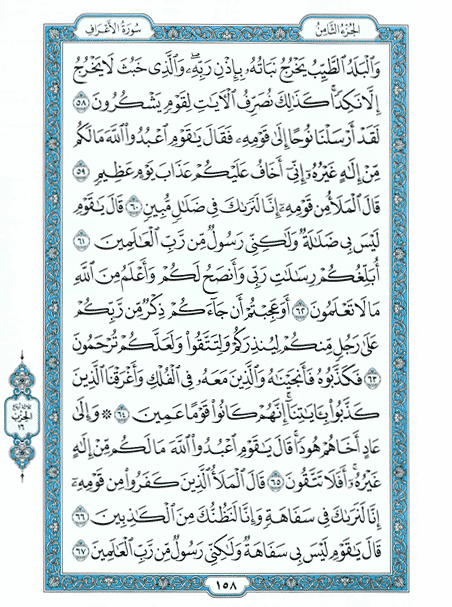 سُورَةُ الْأَعْرَافِ
الجُزءُ الثَّامِنُ
وَٱلْبَلَدُ ٱلطَّيِّبُ يَخْرُجُ نَبَاتُهُۥ بِإِذْنِ رَبِّهِۦۖ وَٱلَّذِى خَبُثَ لَا يَخْرُجُ
إِلَّا نَكِدًاۚ كَذَٰلِكَ نُصَرِّفُ ٱلْءَايَٰتِ لِقَوْمٍ يَشْكُرُونَ ٥٨
لَقَدْ أَرْسَلْنَا نُوحًا إِلَىٰ قَوْمِهِۦ فَقَالَ يَٰقَوْمِ ٱعْبُدُوا۟ ٱللَّهَ مَا لَكُم
مِّنْ إِلَٰهٍ غَيْرُهُۥٓ إِنِّىٓ أَخَافُ عَلَيْكُمْ عَذَابَ يَوْمٍ عَظِيمٍ ٥٩
قَالَ ٱلْمَلَأُ مِن قَوْمِهِۦٓ إِنَّا لَنَرَىٰكَ فِى ضَلَٰلٍ مُّبِينٍ ٦٠ قَالَ يَٰقَوْمِ
لَيْسَ بِى ضَلَٰلَةٌ وَلَٰكِنِّى رَسُولٌ مِّن رَّبِّ ٱلْعَٰلَمِينَ ٦١
أُبَلِّغُكُمْ رِسَٰلَٰتِ رَبِّى وَأَنصَحُ لَكُمْ وَأَعْلَمُ مِنَ ٱللَّهِ
مَا لَا تَعْلَمُونَ ٦٢ أَوَعَجِبْتُمْ أَن جَآءَكُمْ ذِكْرٌ مِّن رَّبِّكُمْ
عَلَىٰ رَجُلٍ مِّنكُمْ لِيُنذِرَكُمْ وَلِتَتَّقُوا۟ وَلَعَلَّكُمْ تُرْحَمُونَ
٦٣ فَكَذَّبُوهُ فَأَنجَيْنَٰهُ وَٱلَّذِينَ مَعَهُۥ فِى ٱلْفُلْكِ وَأَغْرَقْنَا ٱلَّذِينَ
كَذَّبُوا۟ بِـَٔايَٰتِنَآۚ إِنَّهُمْ كَانُوا۟ قَوْمًا عَمِينَ ٦٤ ۞ وَإِلَىٰ
عَادٍ أَخَاهُمْ هُودًاۗ قَالَ يَٰقَوْمِ ٱعْبُدُوا۟ ٱللَّهَ مَا لَكُم مِّنْ إِلَٰهٍ
غَيْرُهُۥٓۚ أَفَلَا تَتَّقُونَ ٦٥ قَالَ ٱلْمَلَأُ ٱلَّذِينَ كَفَرُوا۟ مِن قَوْمِهِۦٓ
إِنَّا لَنَرَىٰكَ فِى سَفَاهَةٍ وَإِنَّا لَنَظُنُّكَ مِنَ ٱلْكَٰذِبِينَ ٦٦
قَالَ يَٰقَوْمِ لَيْسَ بِى سَفَاهَةٌ وَلَٰكِنِّى رَسُولٌ مِّن رَّبِّ ٱلْعَٰلَمِينَ ٦٧
الحِزْب
١٦
١٥٨